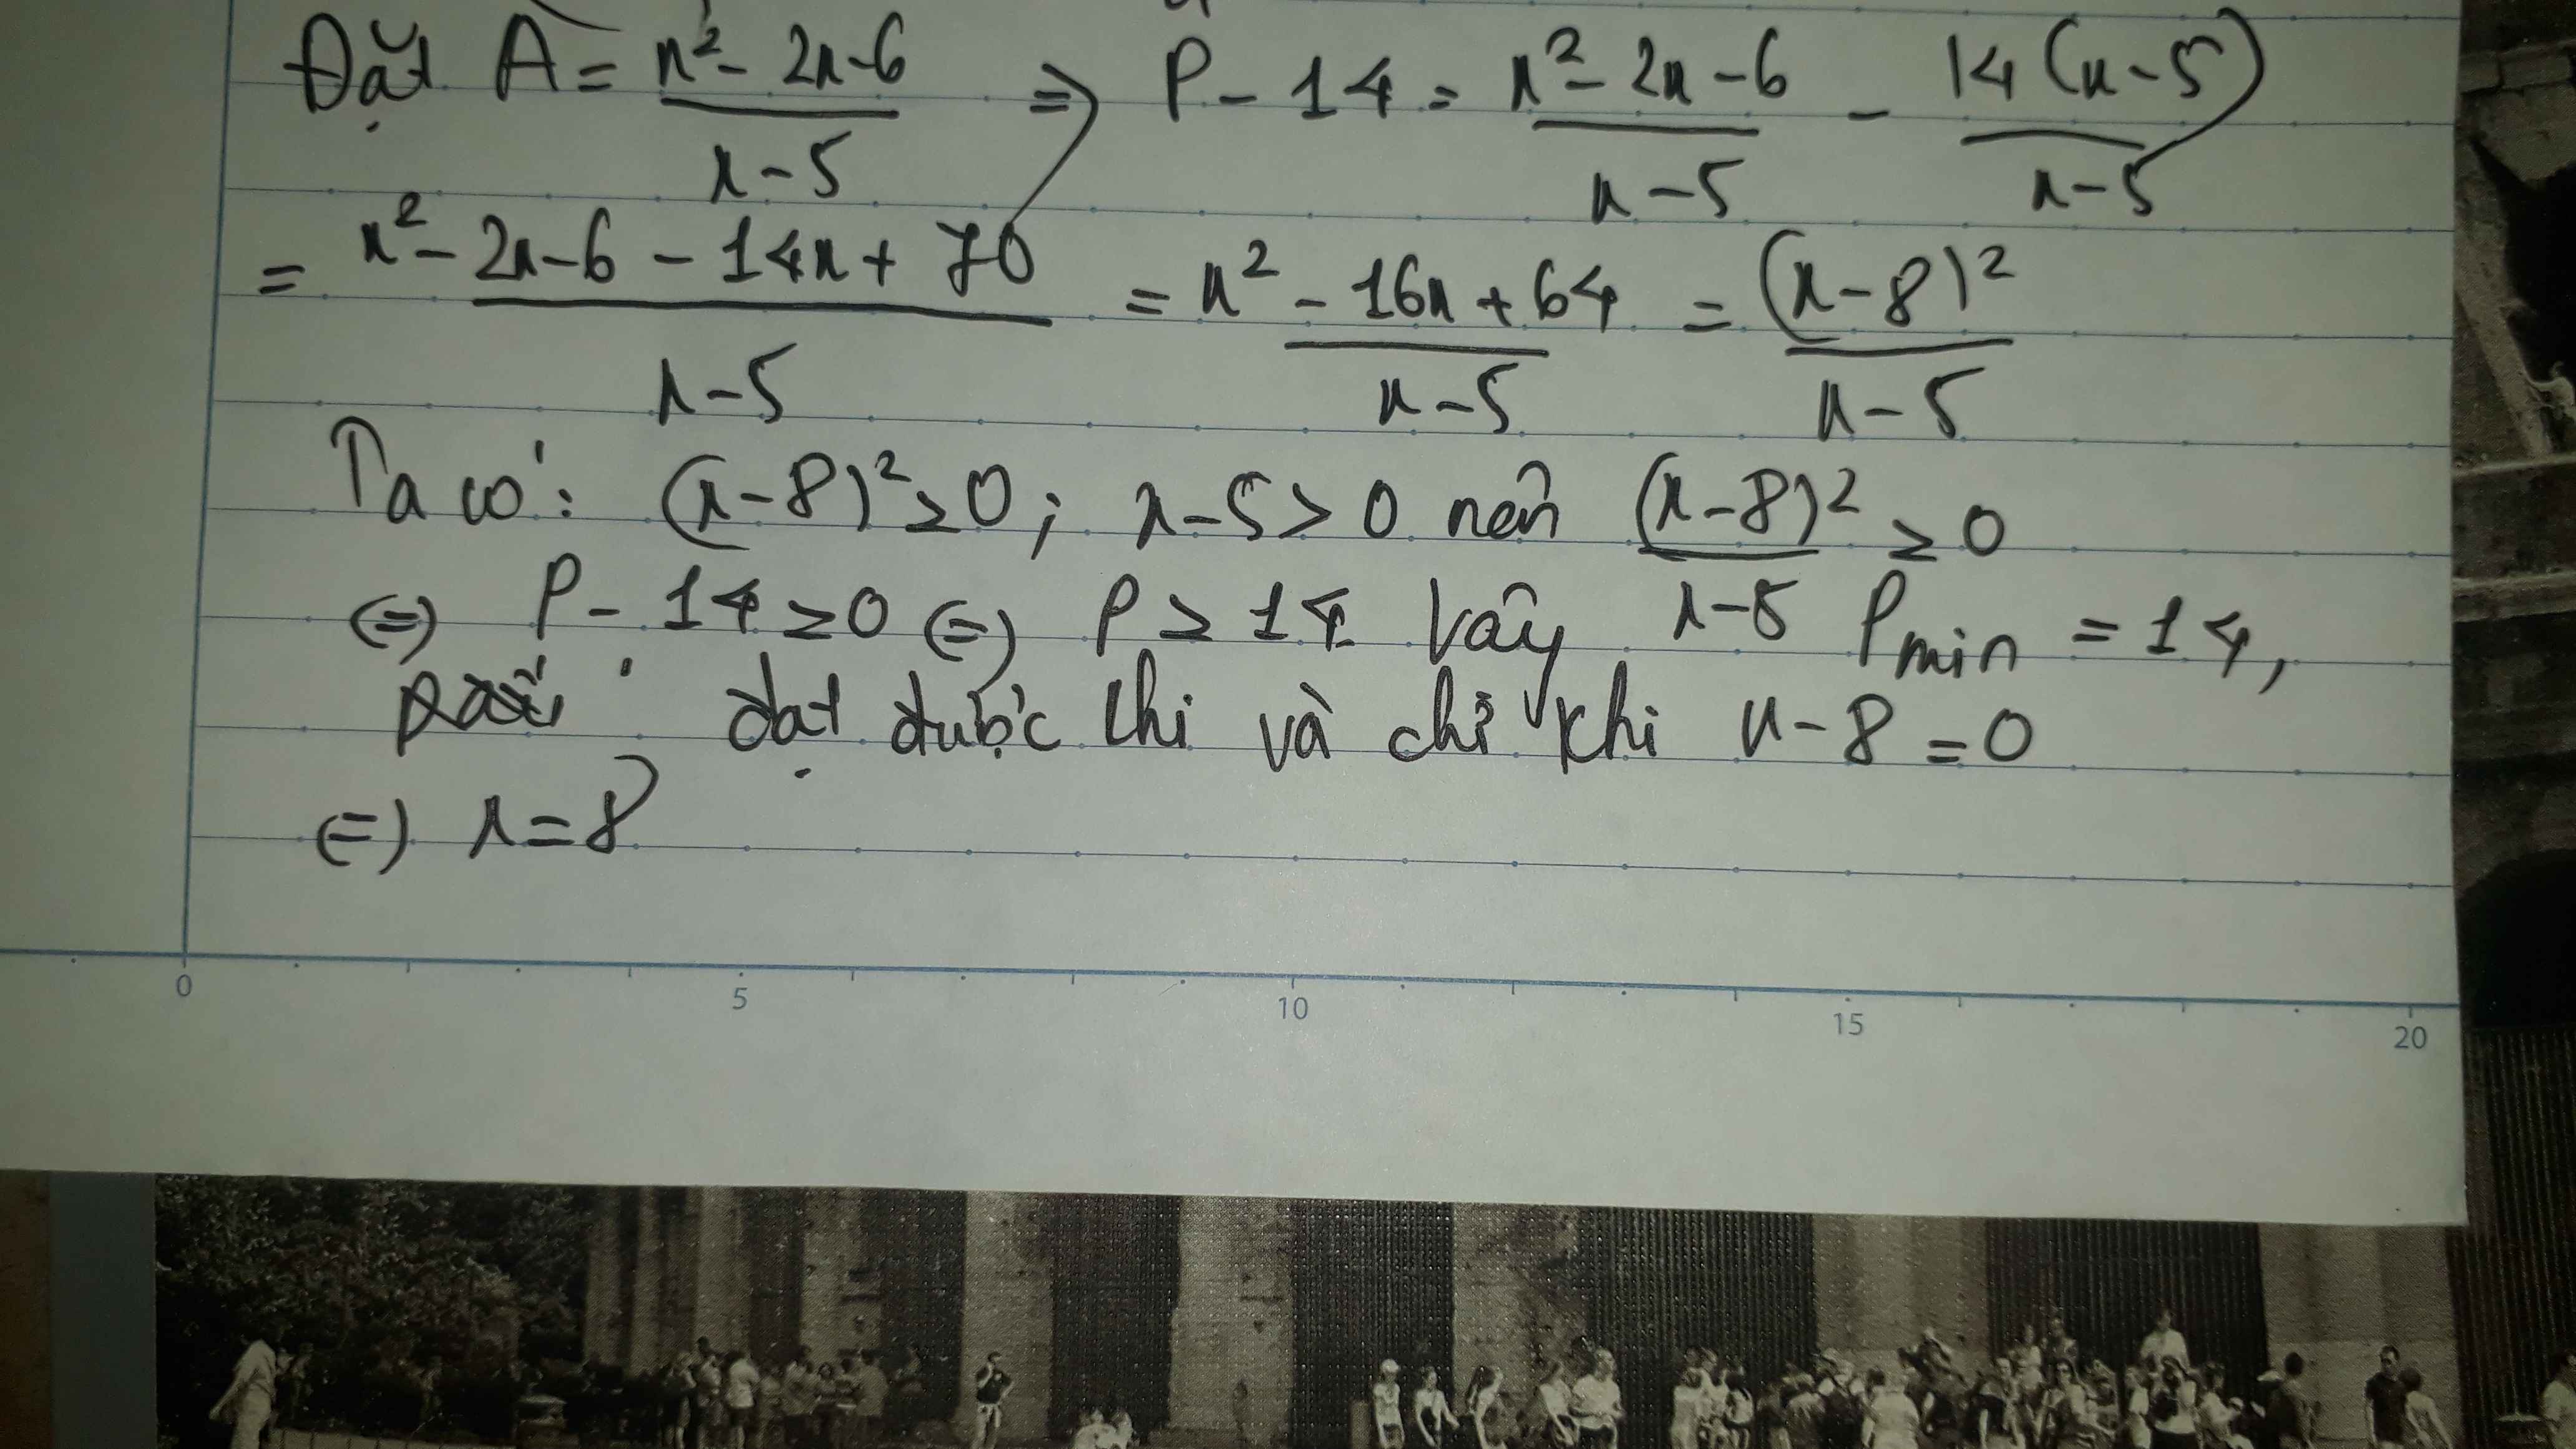 Đặt A = x² - 2x - 6 / x - 5 => P - 14 = x² - 2x - 6 / x - 5 - 14(x - 5) / x - 5
= x² - 2x - 6 - 14x + 70 / x - 5 = x² - 16x + 64 / x - 5 = (x - 8)² / x - 5
Ta có: (x - 8)² ≥ 0; x - 5 > 0 nên (x - 8)² / x - 5 ≥ 0
(=) P - 14 ≥ 0 (=) P ≥ 14 Vậy Pmin = 14,
đạt được khi và chỉ khi x - 8 = 0
(=) x = 8
0 5 10 15 20